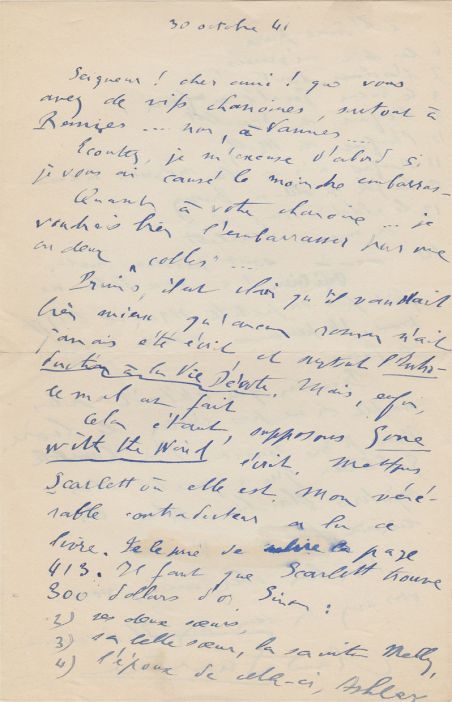 30 octobre 41
Seigneur ! cher ami ! que vous
avez de vifs chanoines, surtout à
Rennes ... non, à Vannes ...
Ecoutez, je m'excuse d'abord si
je vous ai causé le moindre embarras.
Quant à votre chanoine ... je
voudrais bien l'embarrasser par une
ou deux "colles" ...
, il est clair qu'il vaudrait
bien mieux qu'aucun roman n'ait
jamais été écrit et surtout l'Intro-
duction à la Vie Dévote. Mais, enfin,
le mal est fait
Cela étant, supposons Gone
with the Wind écrit. Mettons
Scarlett où elle est. Mon véné-
rable contradicteur a lu ce
livre. Je le prie de relire la page
413. Il faut que Scarlett trouve
300 dollars d'or. Sinon :
2) ses deux sœurs,
3) sa belle sœur, la sainte Melly,
4) l'époux de celle-ci, Ashley